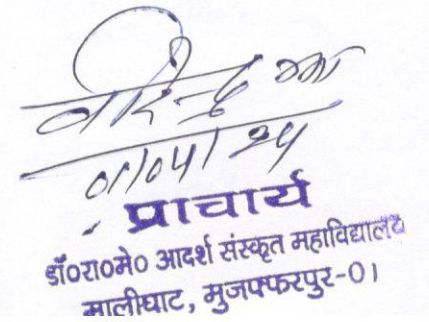 वीरेन्द्र झा
01/04/24
प्राचार्य
डॉ०रा०मे० आदर्श संस्कृत महाविद्यालय
मालीघाट, मुजफ्फरपुर-01